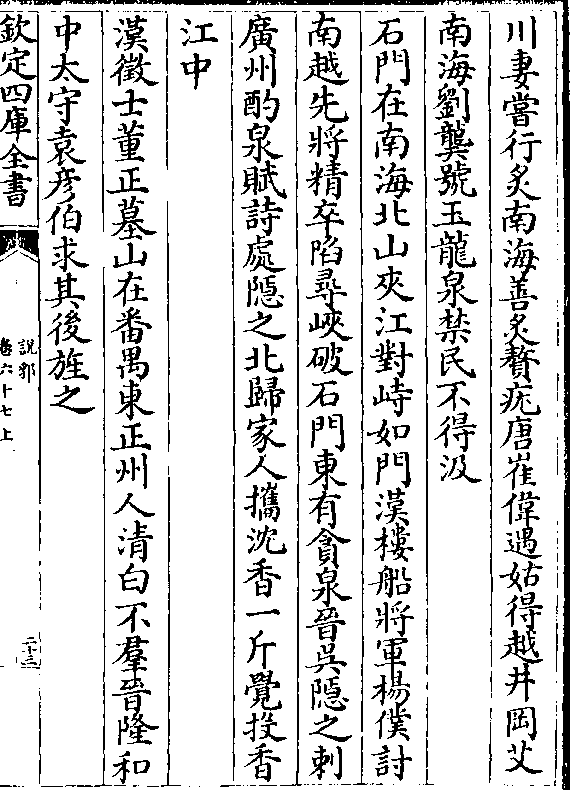 川妻嘗行炙南海善炙贅疣唐崔偉遇姑得越井岡艾
南海劉龑號玉龍泉禁民不得汲
石門在南海北山夾江對峙如門漢樓船將軍楊僕討
南越先將精卒陷尋峽破石門東有貪泉晉吳隱之刺
廣州酌泉賦詩處隱之北歸家人攜沈香一斤覺投香
江中
漢徵士董正墓山在番禺東正州人清白不羣晉隆和
中太守袁彦伯求其後旌之
欽定四庫全書
說郛
卷六十七上
二十三